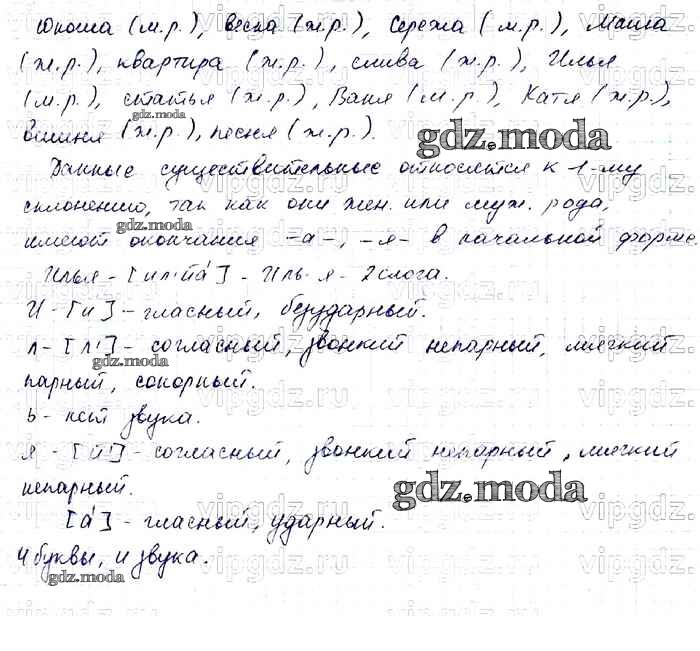 юноша (м.р.), весна (ж.р.), Сережа (м.р.), Маша
(ж.р.), квартира (ж.р.), слива (ж.р.), Илья
(м.р.), статья (ж.р.), Ваня (м.р.), Катя (ж.р.),
вишня (ж.р.), песня (ж.р.).
gdz.moda
Данные существительные относятся к 1-му
склонению, так как они жен. или муж. рода,
gdz.moda
имеют окончания -а-, -я- в начальной форме.
Илья - [ил'й'а́] - Иль-я - 2 слога.
И - [и] - гласный, безударный.
л - [л'] - согласный, звонкий непарный, мягкий
gdz.moda
парный, сонорный.
ь - нет звука.
я - [й'] - согласный, звонкий непарный, мягкий
непарный.
gdz.moda
[а́] - гласный, ударный.
4 буквы, 4 звука.
gdz.moda